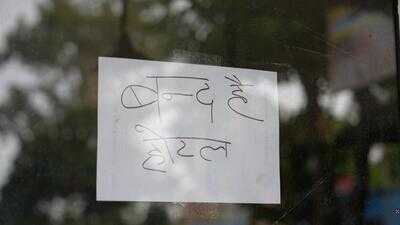 बन्द है
होटल